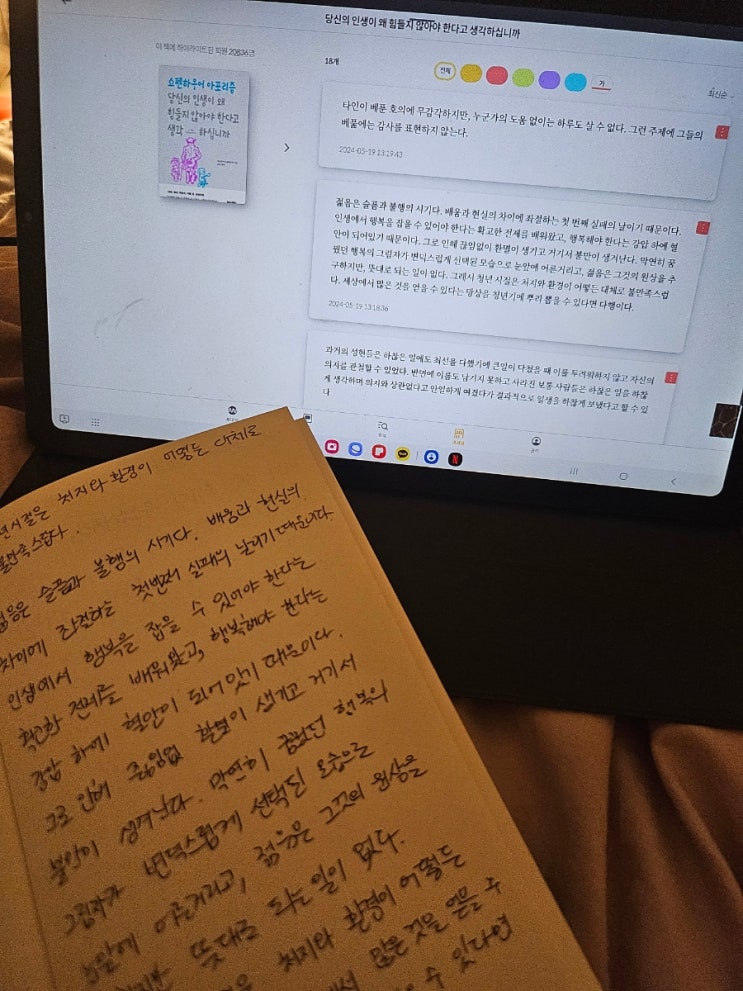 당신의 인생이 왜 힘들지 않아야 한다고 생각하십니까
이 책에 하이라이트한 회원 20836명
쇼펜하우어 아포리즘
당신의 인생이 왜
힘들지 않아야 한다고
생각 하십니까
18개
전체
가
최신순
타인이 베푼 호의에 무감각하지만, 누군가의 도움 없이는 하루도 살 수 없다. 그런 주제에 그들의
베풂에는 감사를 표현하지 않는다.
2024-05-19 13:19:43
젊음은 슬픔과 불행의 시기다. 배움과 현실의 차이에 좌절하는 첫 번째 실패의 날이기 때문이다.
인생에서 행복을 잡을 수 있어야 한다는 확고한 전제를 배워왔고, 행복해야 한다는 강압 하에 혈
안이 되어있기 때문이다. 그로 인해 끊임없이 환멸이 생기고 거기서 불만이 생겨난다. 막연히 꿈
꿨던 행복의 그림자가 변덕스럽게 선택된 모습으로 눈앞에 어른거리고, 젊음은 그것의 원상을 추
구하지만, 뜻대로 되는 일이 없다. 그래서 청년 시절은 처지와 환경이 어떻든 대체로 불만족스럽
다. 세상에서 많은 것을 얻을 수 있다는 망상을 청년기에 뿌리 뽑을 수 있다면 다행이다.
2024-05-19 13:18:36
과거의 성현들은 하찮은 일에도 최선을 다했기에 큰일이 다쳤을 때 이를 두려워하지 않고 자신의
의지를 관철할 수 있었다. 반면에 이름도 남기지 못하고 사라진 보통 사람들은 하찮은 일을 하찮
게 생각하며 의지와 상관없다고 안일하게 여겼다가 결과적으로 일생을 하찮게 보냈다고 할 수 있
다
N
년시절은 처지와 환경이 어떻든 대체로
불만족스럽다.
젊음은 슬픔과 불행의 시기다. 배움과 현실의
차이에 좌절하는 첫번째 실패의 날이기 때문이다.
인생에서 행복을 잡을 수 있어야 한다는
확고한 전제를 배워왔고, 행복해야 한다는
강압 하에 혈안이 되어있기 때문이다.
그로 인해 끊임없 환멸이 생기고 거기서
불만이 생겨난다. 막연히 꿈꿨던 행복의
그림자가 변덕스럽게 선택된 모습으로
눈앞에 어른거리고, 젊음은 그것의 원상을
뜻대로 되는 일이 없다.
처지와 환경이 어떻든
많은 것을 얻을 수
수 있다면